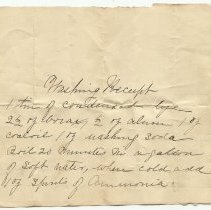 Washing Receipt
1 tin of condensed lye
2 of borax of alum 1 of
1 of washing soda
Boil 20 minutes in gallon
of Soft water, when cold add
of Spirits of Ammonia